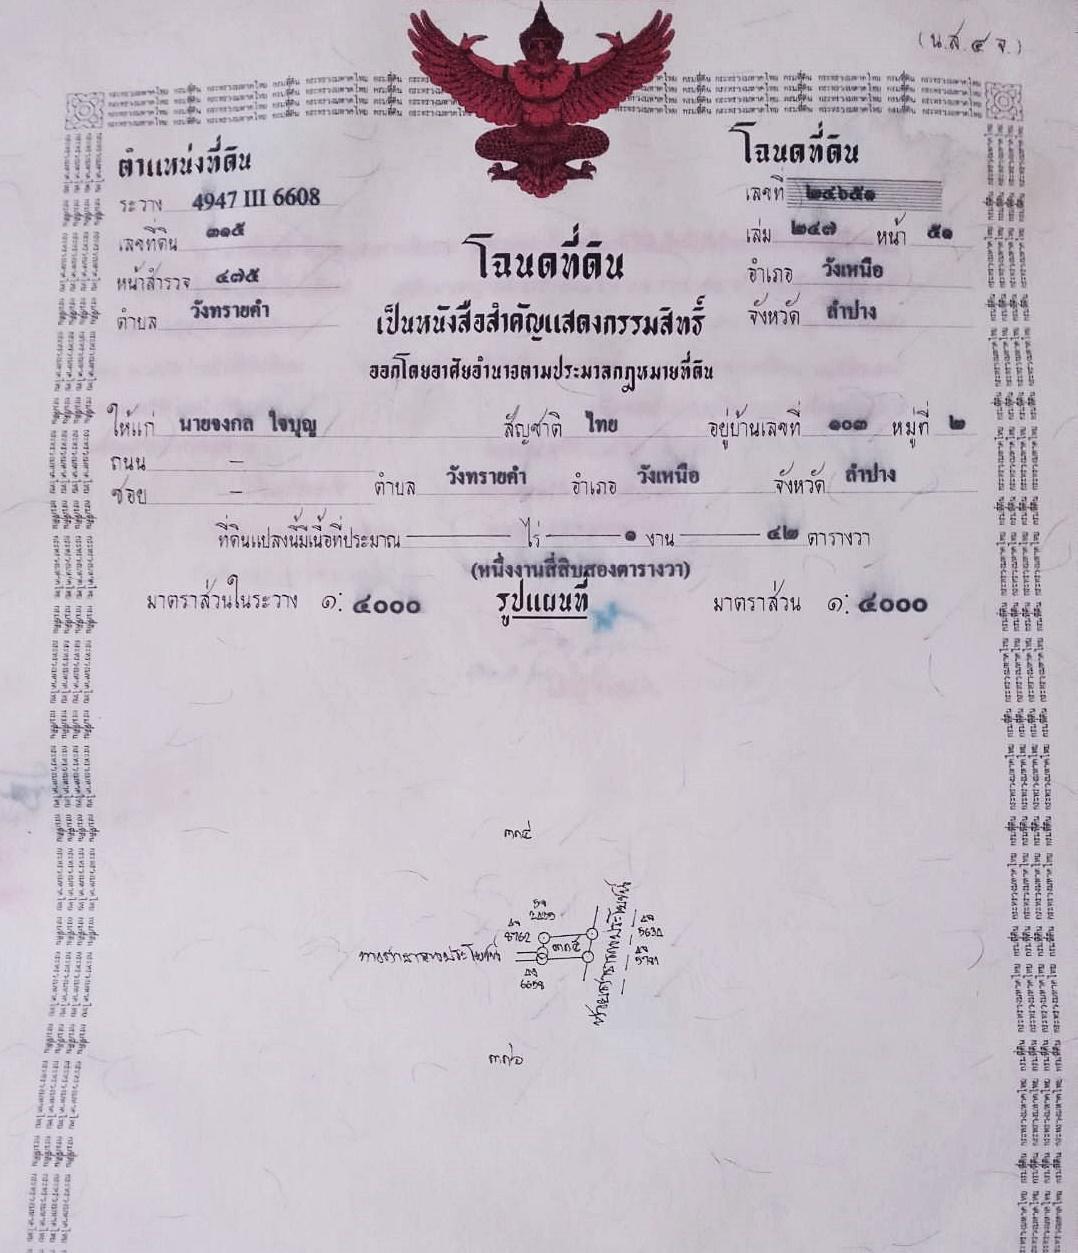 (น.ส.๔ จ.)
ตำแหน่งที่ดิน
ระวาง 4947 III 6608
เลขที่ดิน ๓๑๕
หน้าสำรวจ ๔๗๕
ตำบล วังทรายคำ
โฉนดที่ดิน
เลขที่ ๒๔๖๕๑
เล่ม ๒๔๗ หน้า ๕๑
อำเภอ วังเหนือ
จังหวัด ลำปาง
โฉนดที่ดิน
เป็นหนังสือสำคัญแสดงกรรมสิทธิ์
ออกโดยอาศัยอำนาจตามประมวลกฎหมายที่ดิน
ให้แก่ นายจงกล ใจบุญ สัญชาติ ไทย อยู่บ้านเลขที่ ๑๐๓ หมู่ที่ ๒
ถนน –
ซอย – ตำบล วังทรายคำ อำเภอ วังเหนือ จังหวัด ลำปาง
ที่ดินแปลงนี้มีเนื้อที่ประมาณ — ไร่ — ๑ งาน — ๔๒ ตารางวา
(หนึ่งงานสี่สิบสองตารางวา)
มาตราส่วนในระวาง ๑: ๔๐๐๐ รูปแผนที่ มาตราส่วน ๑: ๔๐๐๐
ทางสาธารณประโยชน์
6659